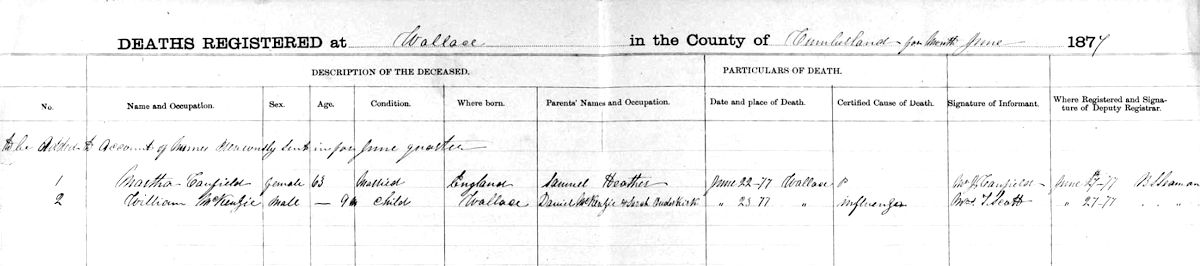 DEATHS REGISTERED at Wallace in the County of Cumberland for Month June 1877
DESCRIPTION OF THE DECEASED. PARTICULARS OF DEATH.
No. Name and Occupation. Sex. Age. Condition. Where born. Parents' Names and Occupation. Date and place of Death. Certified Cause of Death. Signature of Informant. Where Registered and Signature of Deputy Registrar.
to be Added to Account of Names Previously Sent in for June quarter
1 Martha Canfield female 63 Married England Samuel Heather June 22-77 Wallace Canfield June 27-77
2 William McKenzie Male — 9m Child Wallace Daniel McKenzie & Sarah " 23 77 " Influenza Scott " 27-77 " "